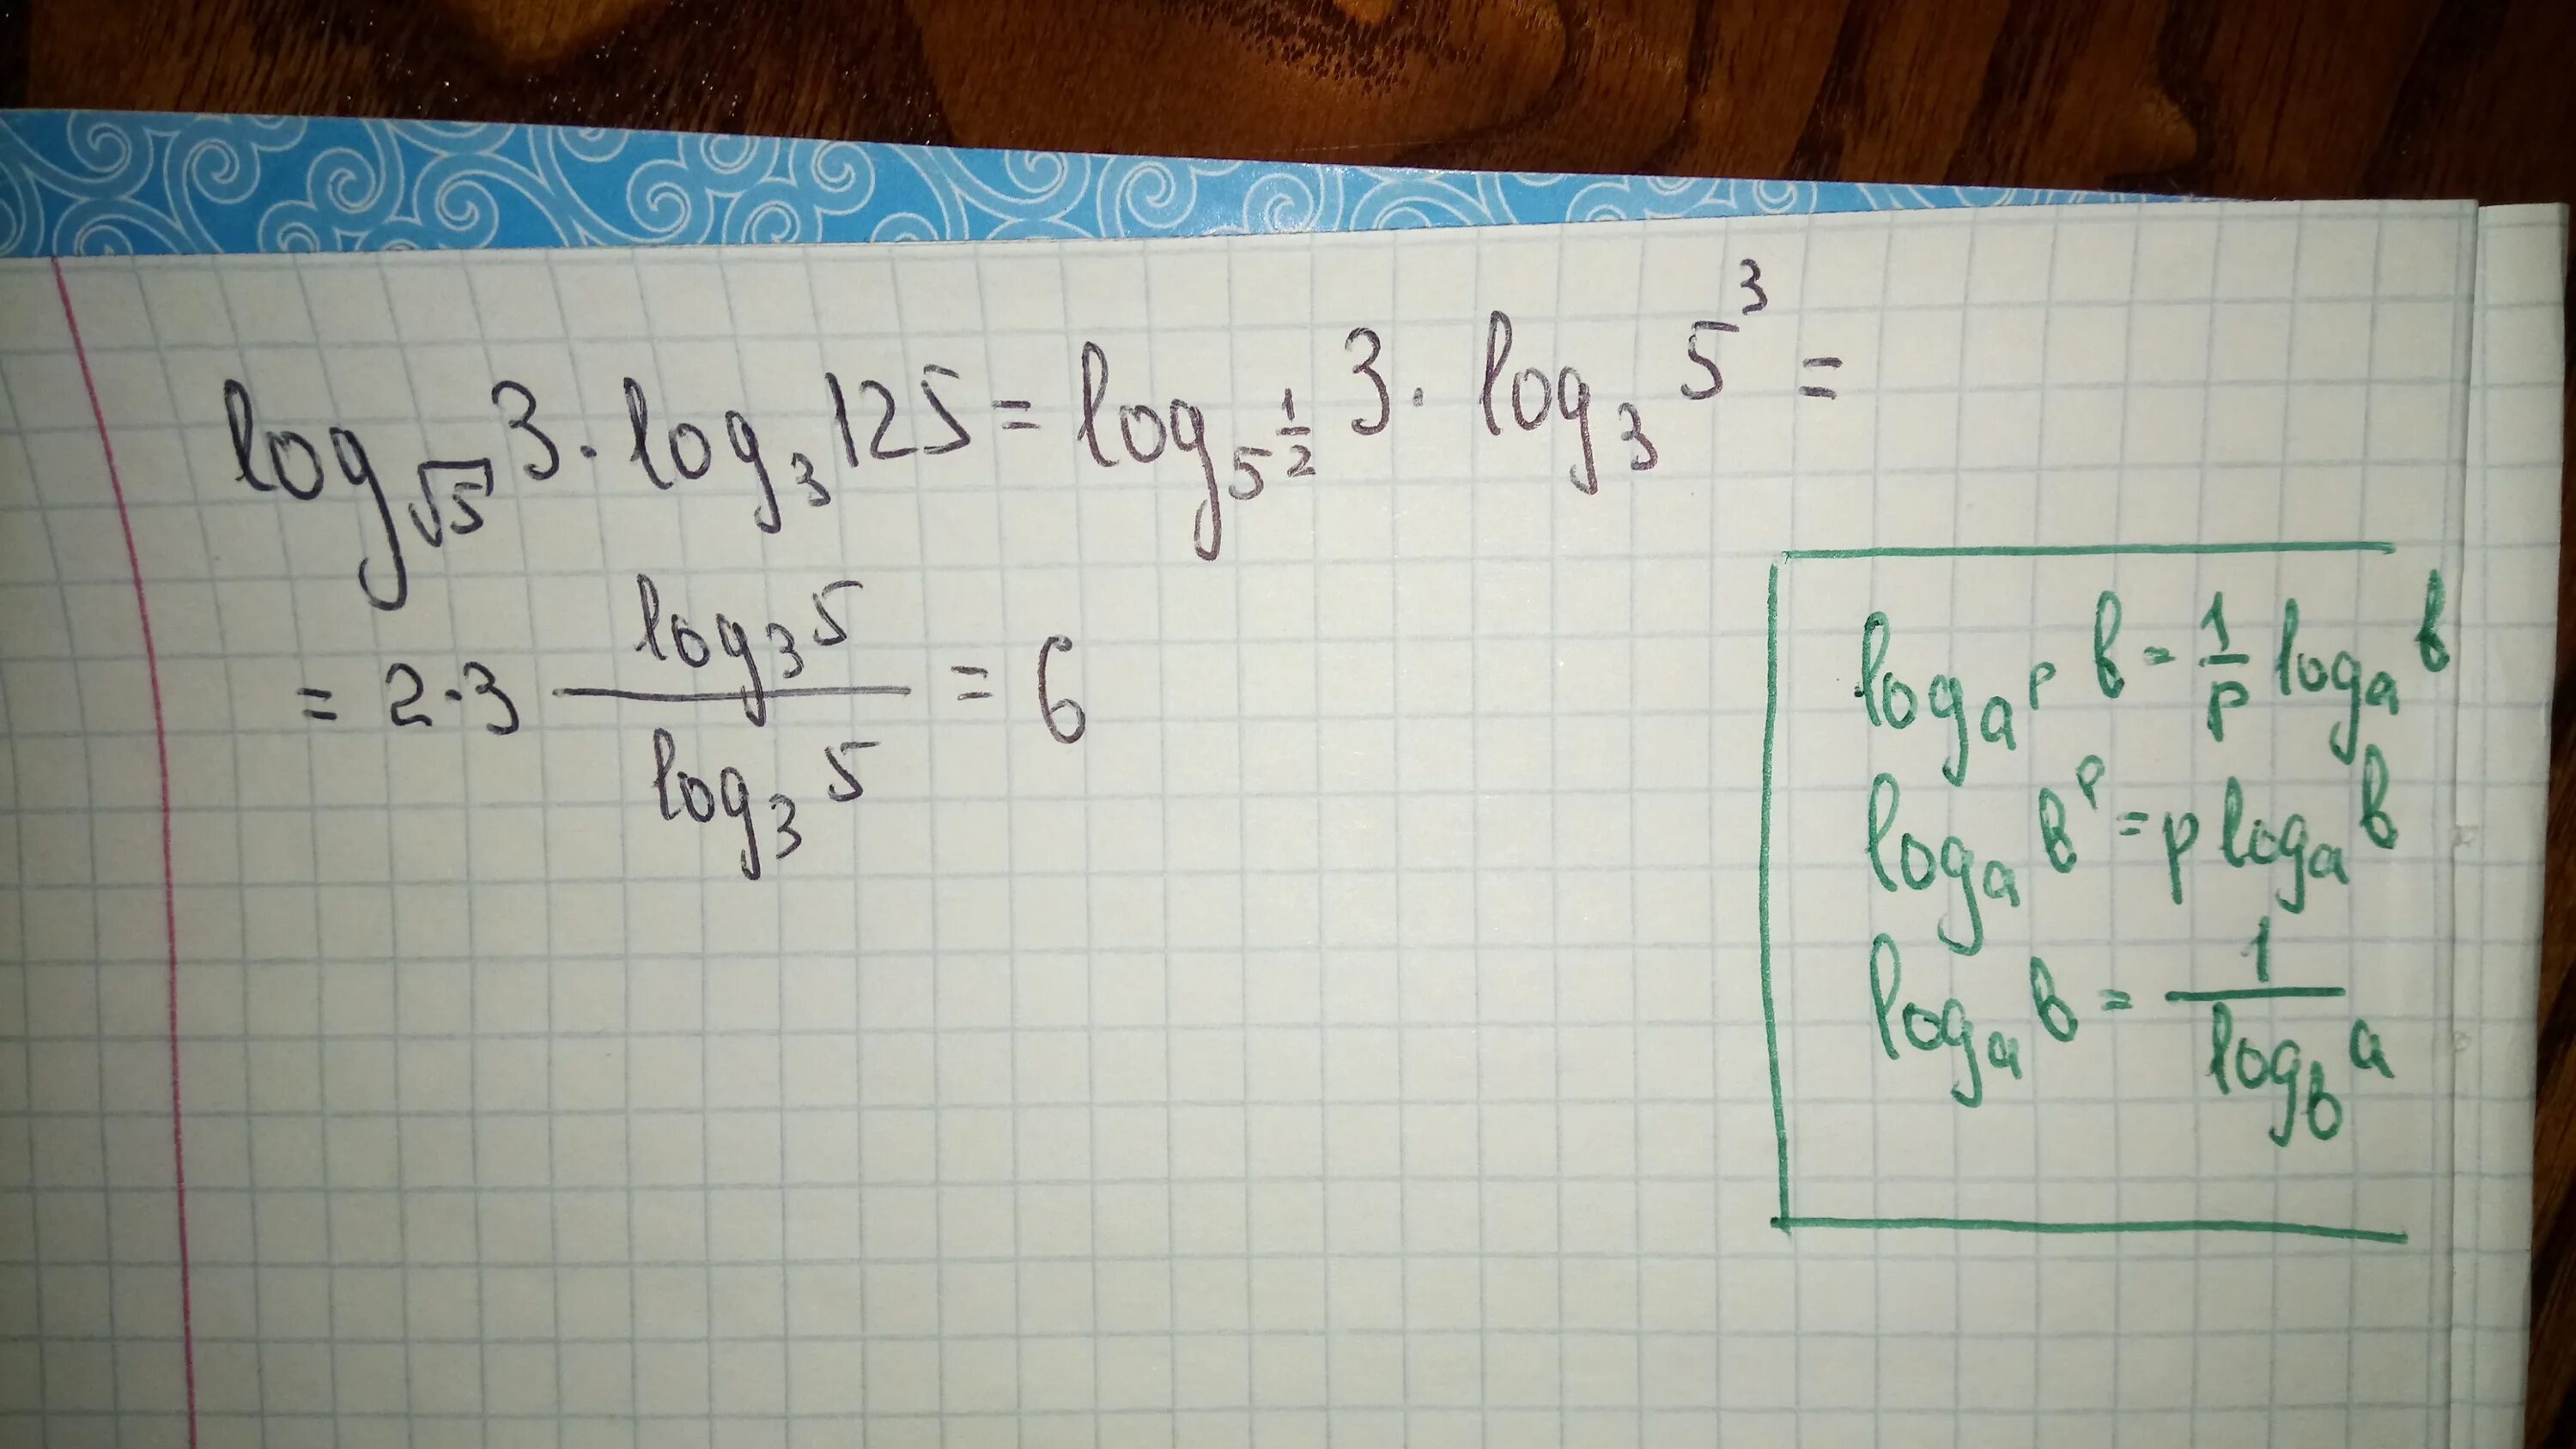 log_{√5} 3 · log_3 125 = log_{5^{1/2}} 3 · log_3 5^3 =
= 2·3 \frac{log_3 5}{log_3 5} = 6
log_{a^p} b = \frac{1}{p} log_a b
log_a b^p = p log_a b
log_a b = \frac{1}{log_b a}